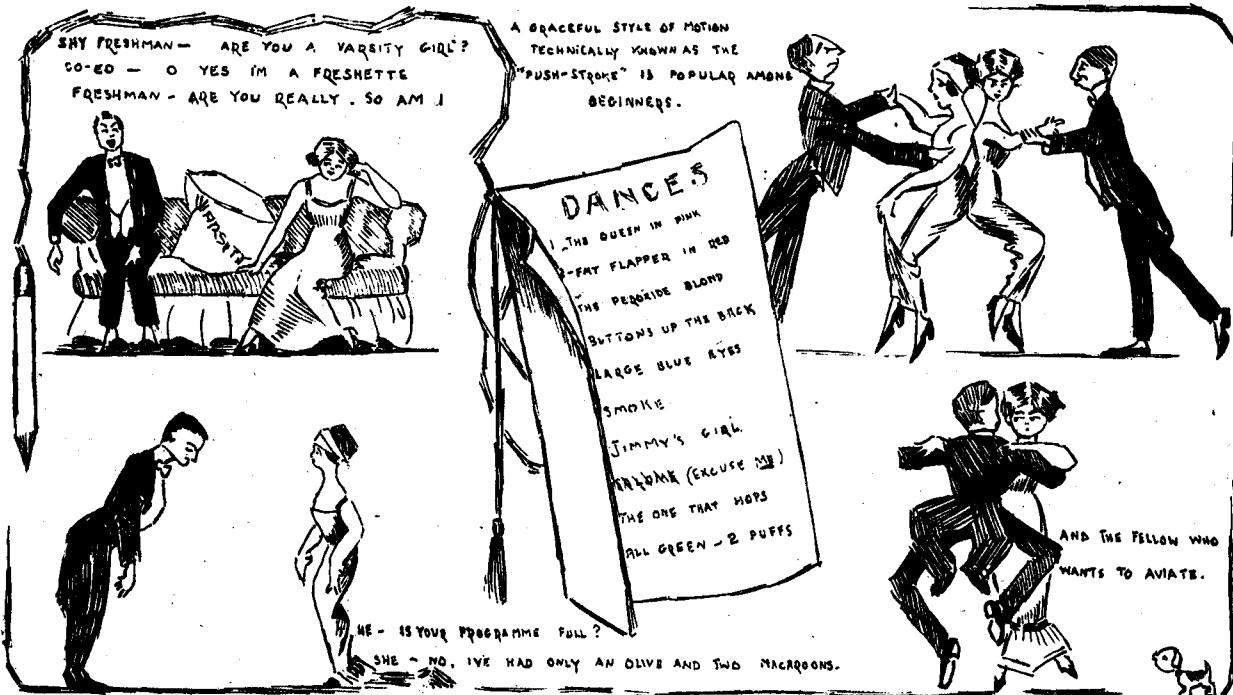 SHY FRESHMAN — ARE YOU A VARSITY GIRL?
CO-ED — O YES I'M A FRESHETTE
FRESHMAN - ARE YOU REALLY. SO AM I
VARSITY
A GRACEFUL STYLE OF MOTION
TECHNICALLY KNOWN AS THE
"PUSH-STROKE" IS POPULAR AMONG
BEGINNERS.
DANCES
1 - THE QUEEN IN PINK
2 - FAT FLAPPER IN RED
THE PEROXIDE BLOND
BUTTONS UP THE BACK
LARGE BLUE EYES
SMOKE
JIMMY'S GIRL
SALOME (EXCUSE ME)
THE ONE THAT HOPS
ALL GREEN - 2 PUFFS
AND THE FELLOW WHO
WANTS TO AVIATE.
HE - IS YOUR PROGRAMME FULL?
SHE - NO, I'VE HAD ONLY AN OLIVE AND TWO MACAROONS.